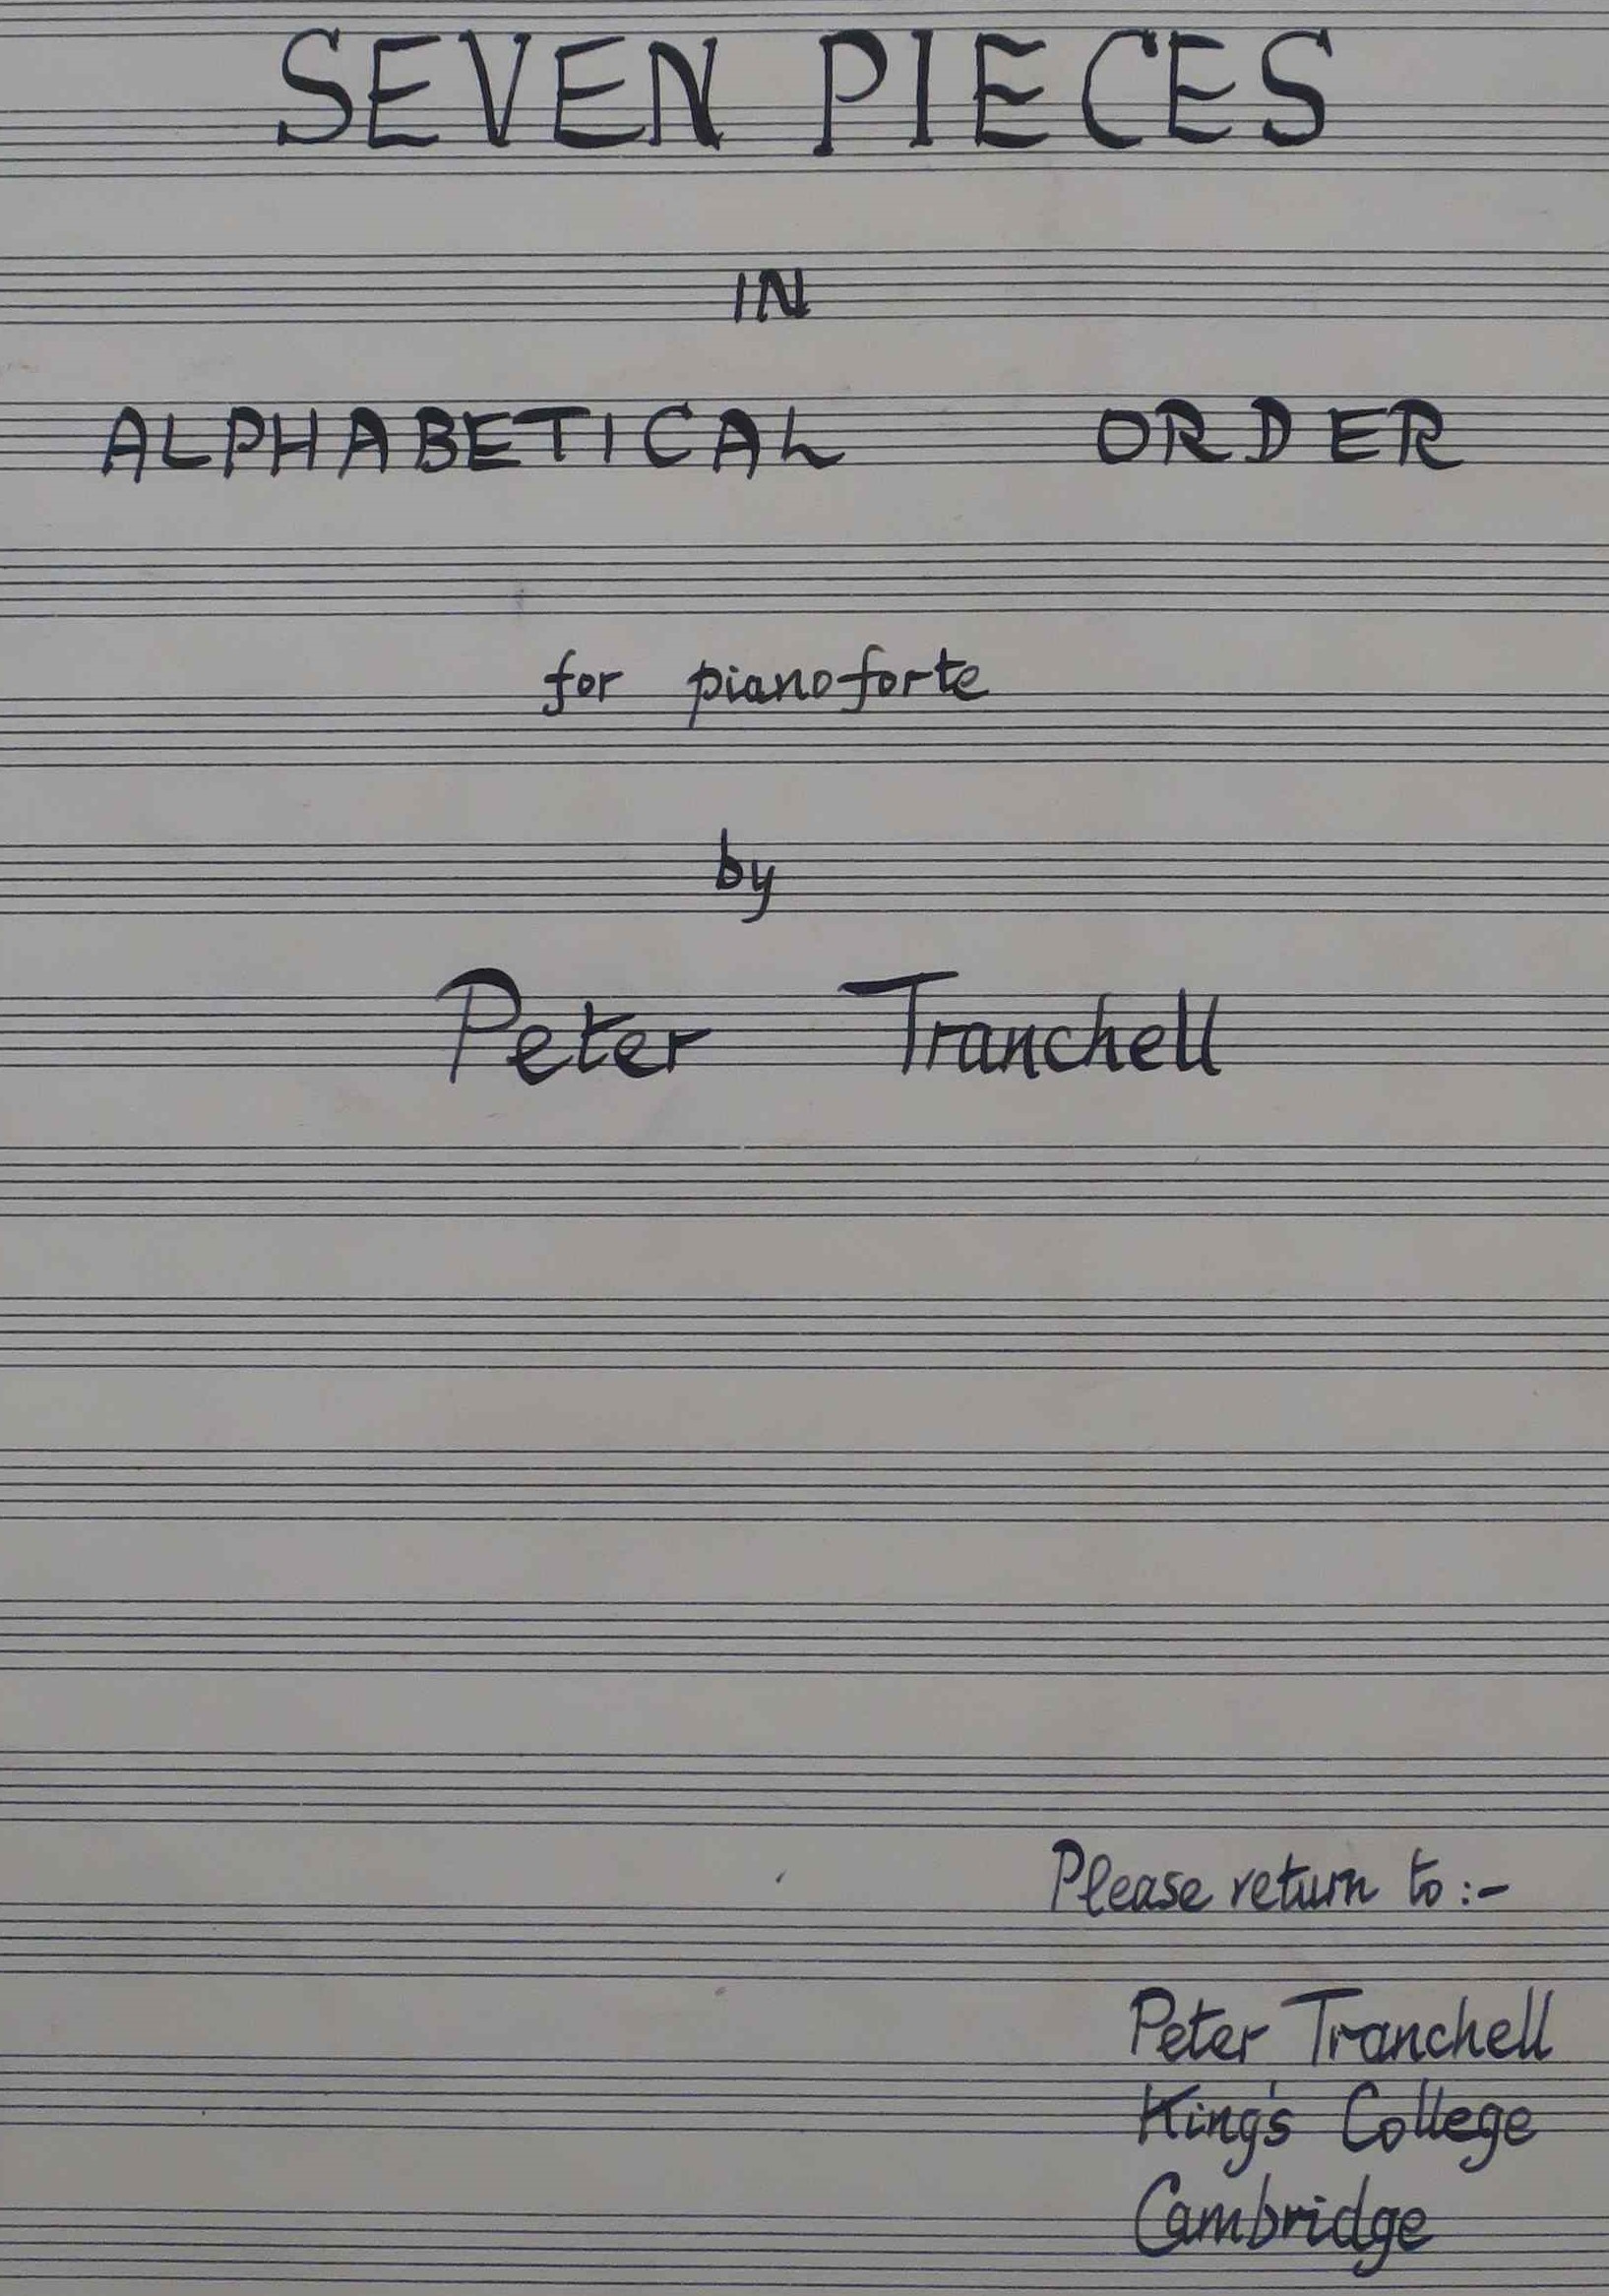 SEVEN PIECES
IN
ALPHABETICAL ORDER
for pianoforte
by
Peter Tranchell
Please return to :-
Peter Tranchell
King's College
Cambridge